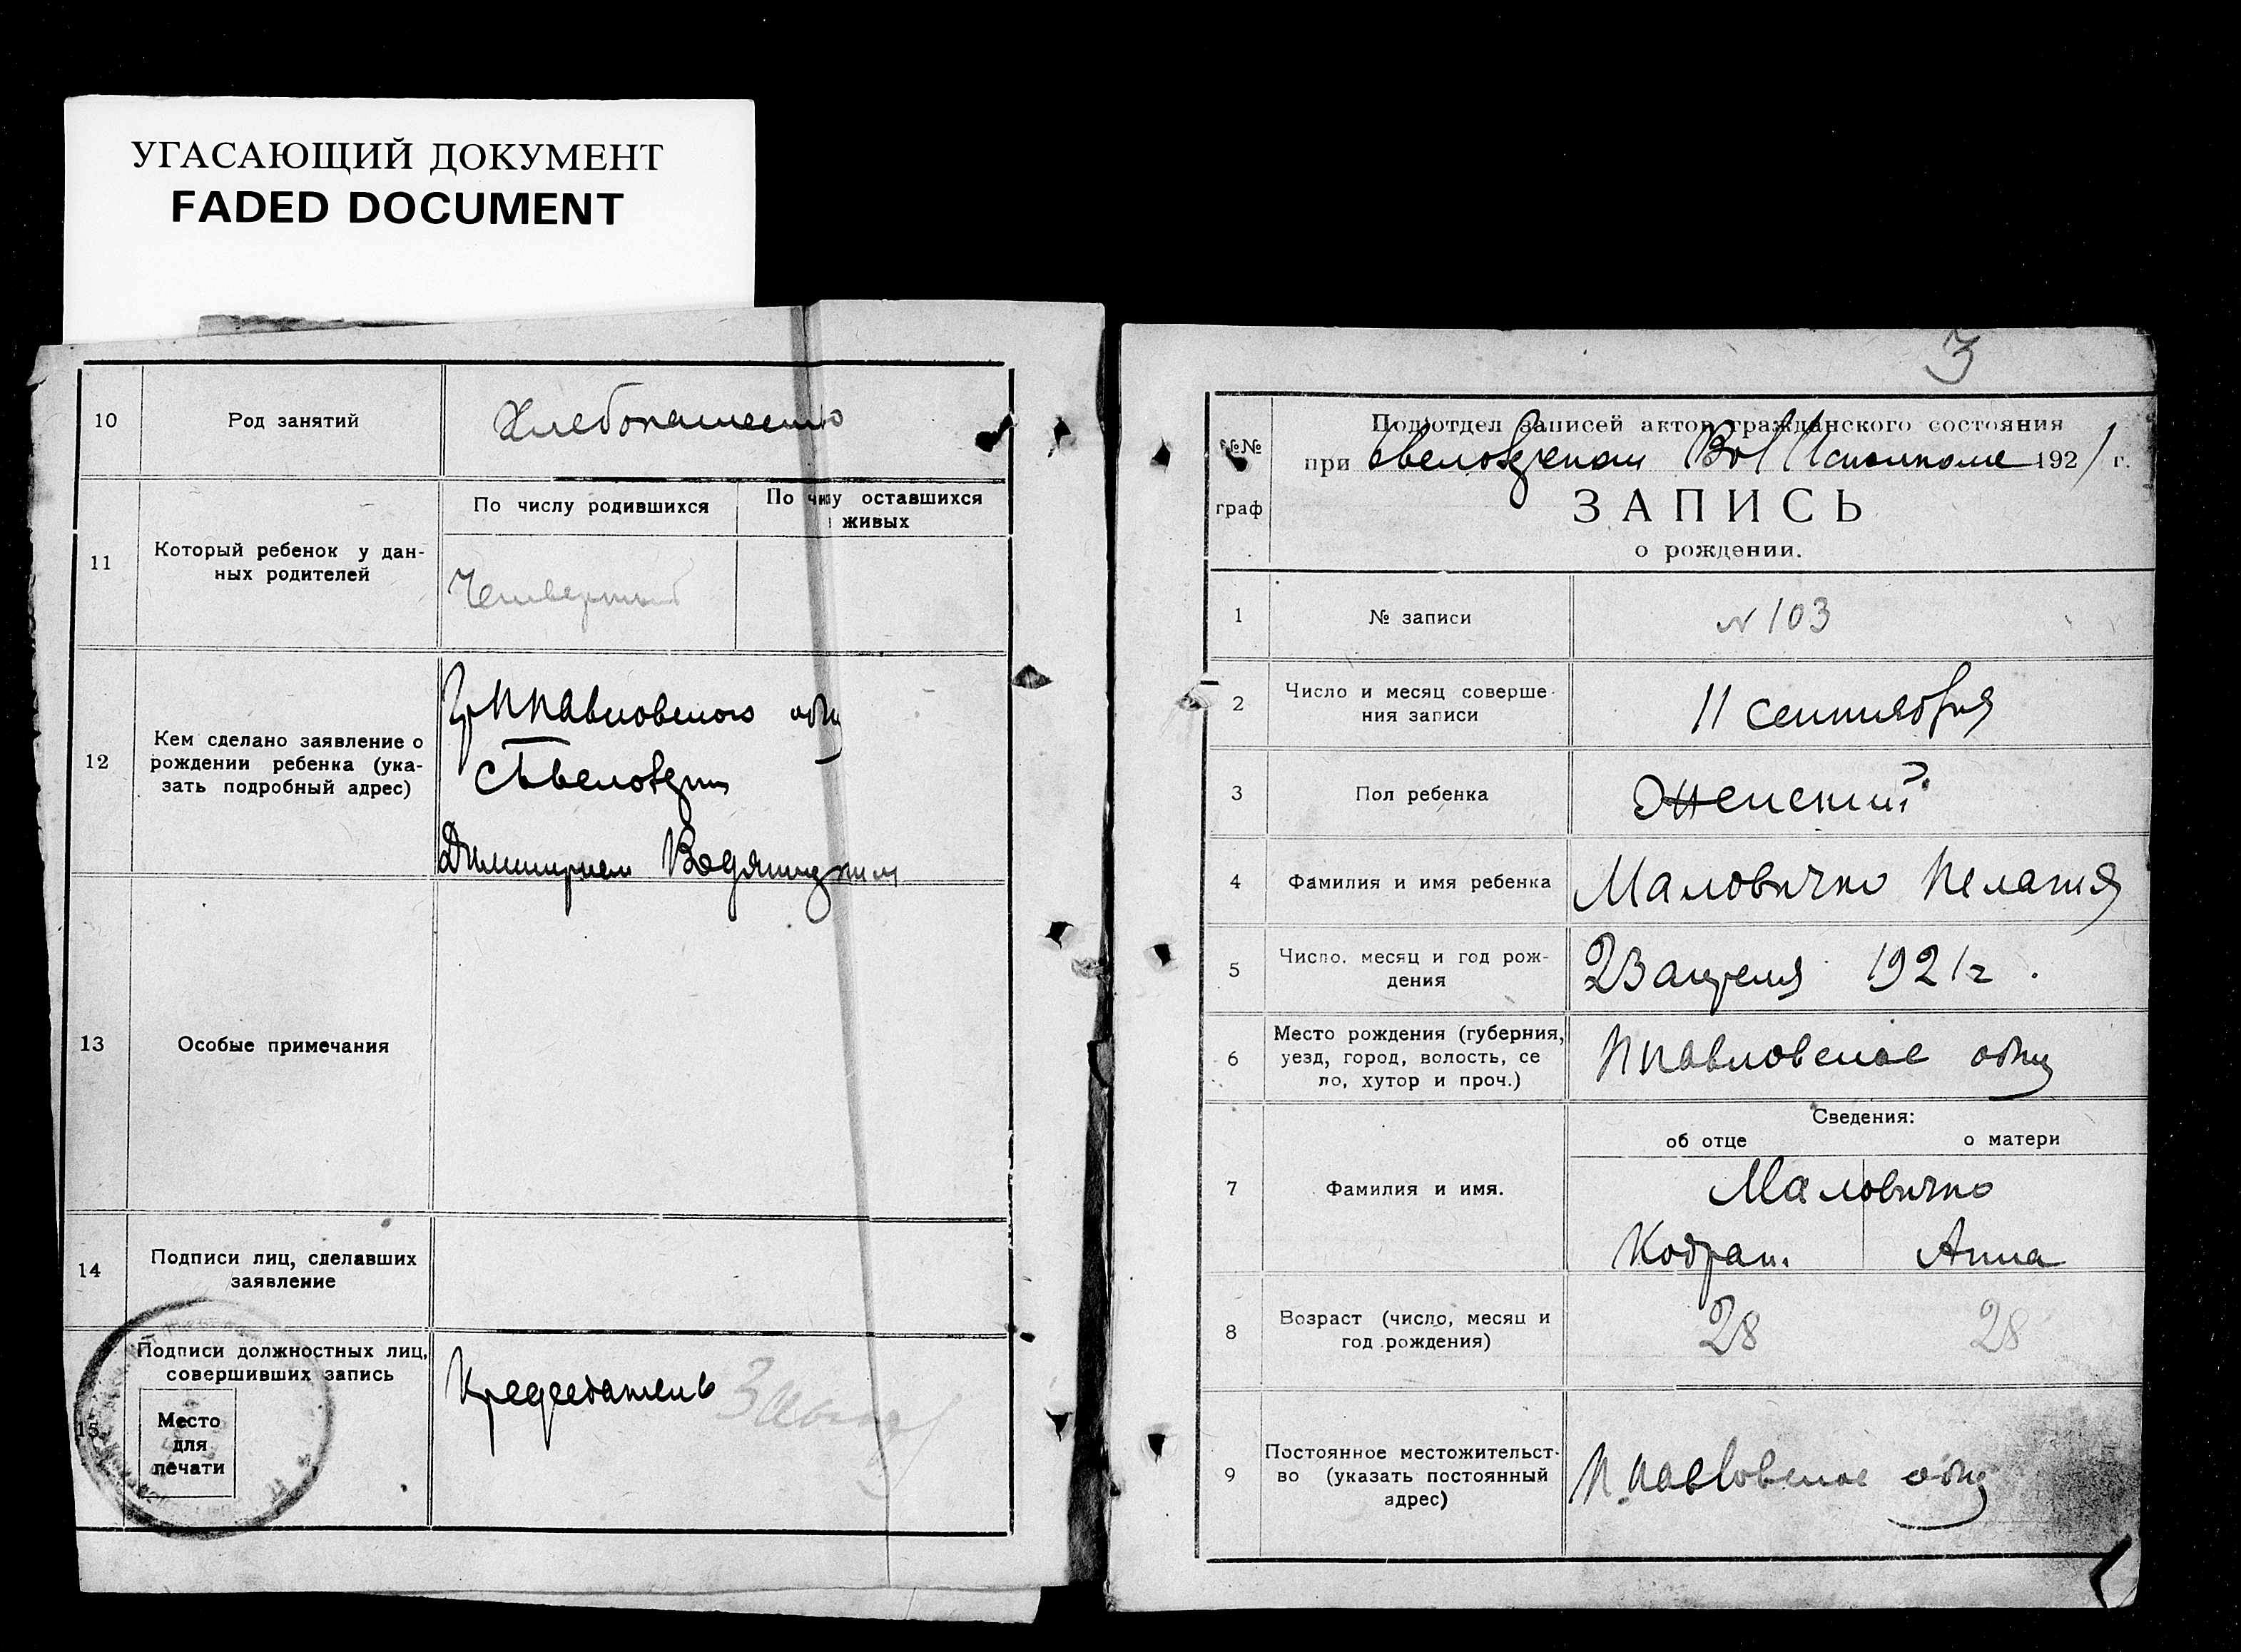 УГАСАЮЩИЙ ДОКУМЕНТ
FADED DOCUMENT
10
Род занятий
Хлебопашество
11
Который ребенок у дан-
ных родителей
По числу родившихся
По числу оставшихся
живых
Четвертый
12
Кем сделано заявление о
рождении ребенка (ука-
зать подробный адрес)
гр Ппавловского общ
Димитрием
13
Особые примечания
14
Подписи лиц, сделавших
заявление
15
Подписи должностных лиц,
совершивших запись
Место
для
печати
Председатель
3
№№
граф
Подотдел записей актов гражданского состояния
при Вол Исполкоме 1921 г.
ЗАПИСЬ
о рождении.
1
№ записи
N 103
2
Число и месяц соверше-
ния записи
11 сентября
3
Пол ребенка
Женский
4
Фамилия и имя ребенка
Маловичко Пелагия
5
Число, месяц и год рож-
дения
23 апреля 1921 г.
6
Место рождения (губерния,
уезд, город, волость, се
ло, хутор и проч.)
Ппавловское общ
7
Фамилия и имя.
Сведения:
об отце
о матери
Маловичко
Кодрат.
Анна
8
Возраст (число, месяц и
год рождения)
28
28
9
Постоянное местожительст-
во (указать постоянный
адрес)
П.павловское общ